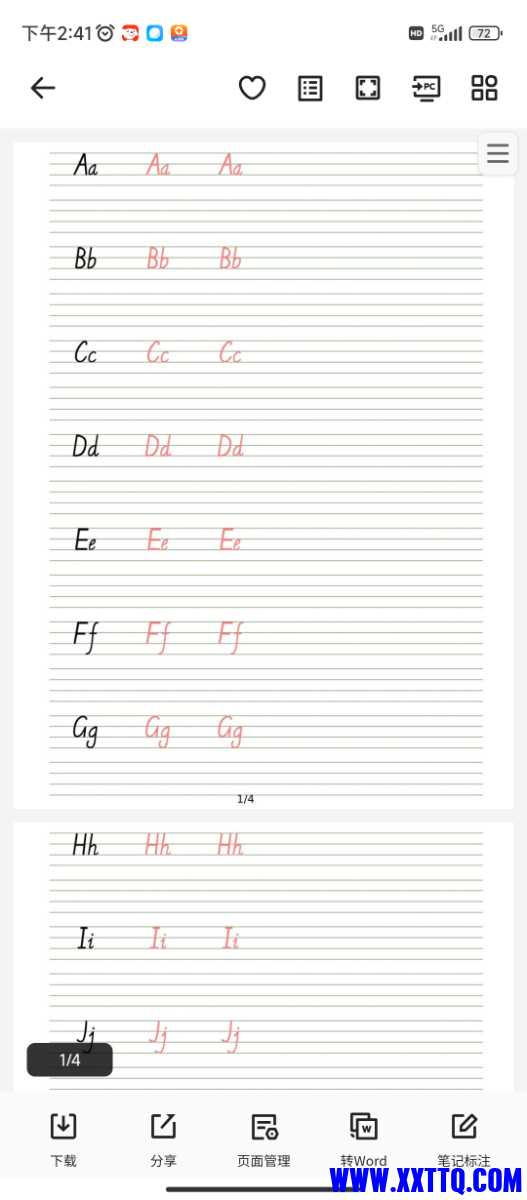 下午2:41 HD 5G 72
PC
Aa Aa Aa
Bb Bb Bb
Cc Cc Cc
Dd Dd Dd
Ee Ee Ee
Ff Ff Ff
Gg Gg Gg
1/4
Hh Hh Hh
Ii Ii Ii
Jj Jj Jj
1/4
W
下载 分享 页面管理 转Word 笔记标注
WWW.XXTTQ.COM